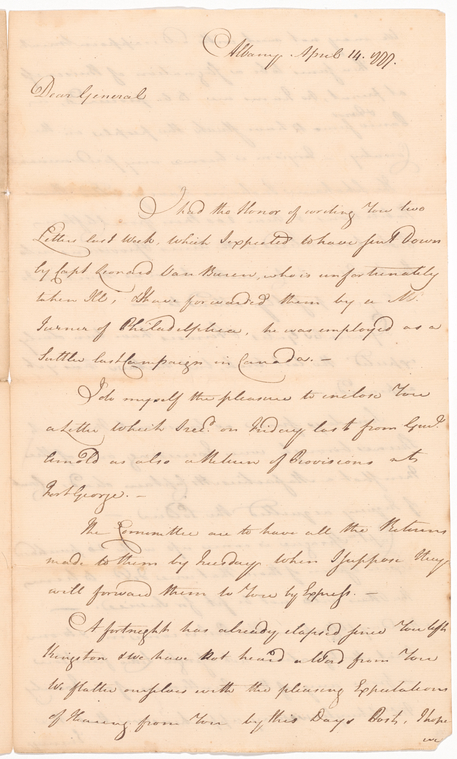 Albany April 14. 1777.
Dear General
I had the Honor of writing You two
Letters last Week, which I expected to have sent Down
by Capt Leonard Van Buren, who is unfortunately
taken Ill, I have forwarded them by a Mr.
Turner of Philadelphia, he was employed as a
Suttler last Campaign in Canada. —
I do myself the pleasure to inclose You
a Letter which I recd. on Friday last from Genl.
Arnold as also a Return of Provisions at
Fort George. —
The Committee are to have all the Returns
made to them by Tuesday when I suppose they
will forward them to You by Express. —
A fortnight has already elapsed since You left
Kingston & we have not heard a Word from You
We flatter ourselves with the pleasing Expectations
of Hearing from You by this Days Post, I hope
we